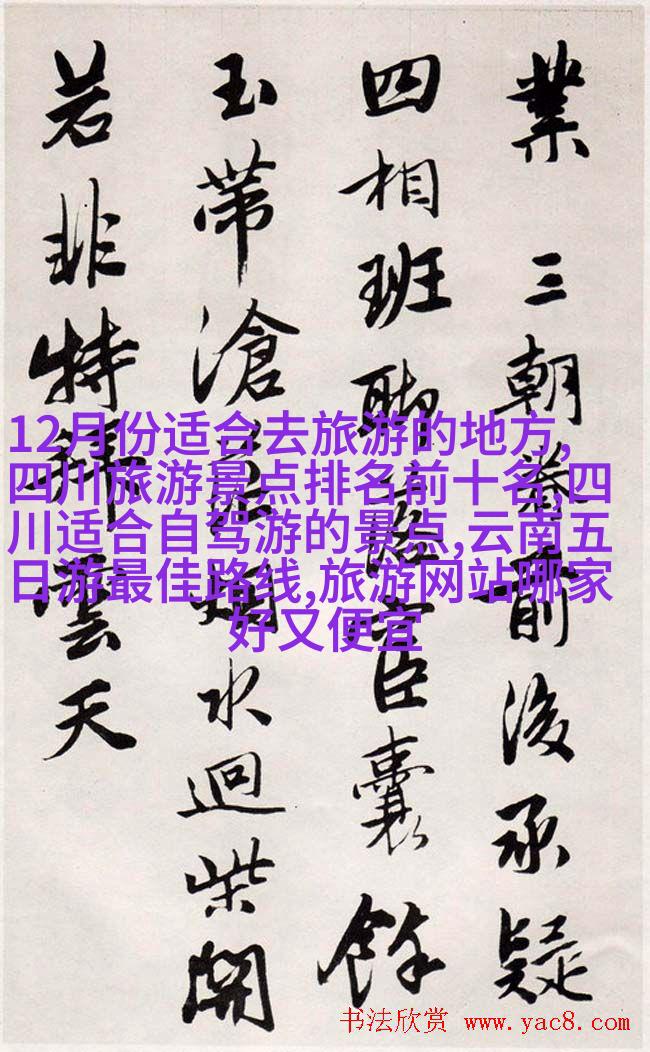 業 三朝眷前後承疑
四相班聯宮臣囊餘
玉帶滄烟水迴柴開
若非特雲天
12月份适合去旅游的地方,
四川旅游景点排名前十名,四
川适合自驾游的景点,云南五
日游最佳路线,旅游网站哪家
好又便宜
书法欣赏 www.yac8.com